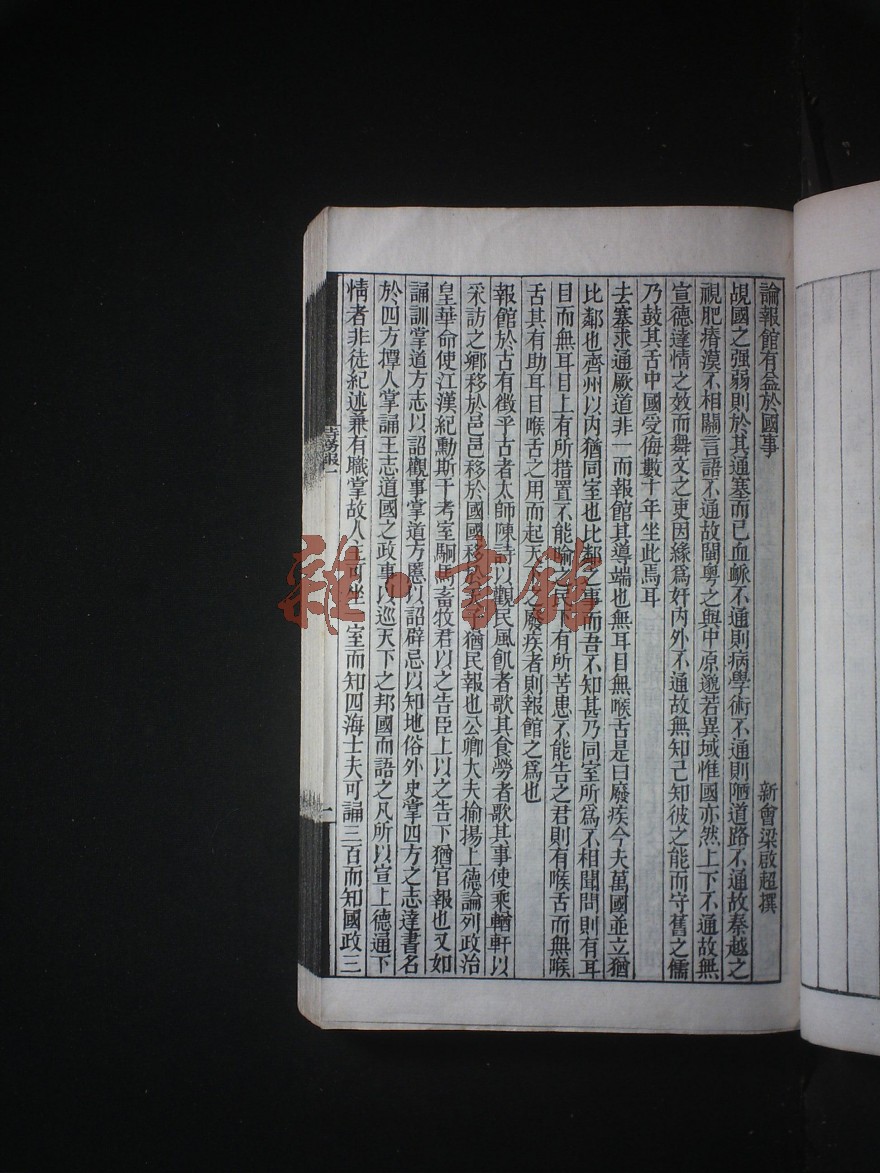 論報館有益於國事
新會梁啟超撰
覘國之强弱則於其通塞而已血脈不通則病學術不通則陋道路不通故秦越之
視肥瘠漠不相關言語不通故閩粵之與中原邈若異域惟國亦然上下不通故無
宣德達情之效而舞文之吏因緣爲奸內外不通故無知己知彼之能而守舊之儒
乃鼓其舌中國受侮數十年坐此焉耳
去塞求通厥道非一而報館其導端也無耳目無喉舌是曰廢疾今夫萬國並立猶
比鄰也齊州以內猶同室也比鄰之事而吾不知甚乃同室所爲不相聞問則有耳
目而無耳目上有所措置不能喻之民下有所苦患不能告之君則有喉舌而無喉
舌其有助耳目喉舌之用而起天下之廢疾者則報館之爲也
報館於古有徵乎古者太師陳詩以觀民風飢者歌其食勞者歌其事使乘輶軒以
采訪之鄉移於邑邑移於國國移於天子猶民報也公卿大夫揄揚上德論列政治
皇華命使江漢紀勳斯干考室駉馬畜牧君以之告臣上以之告下猶官報也又如
誦訓掌道方志以詔觀事掌道方慝以詔辟忌以知地俗外史掌四方之志達書名
於四方撢人掌誦王志道國之政事以巡天下之邦國而語之凡所以宣上德通下
情者非徒紀述兼有職掌故人主可坐一室而知四海士夫可誦三百而知國政三
報一
一
雜·書館